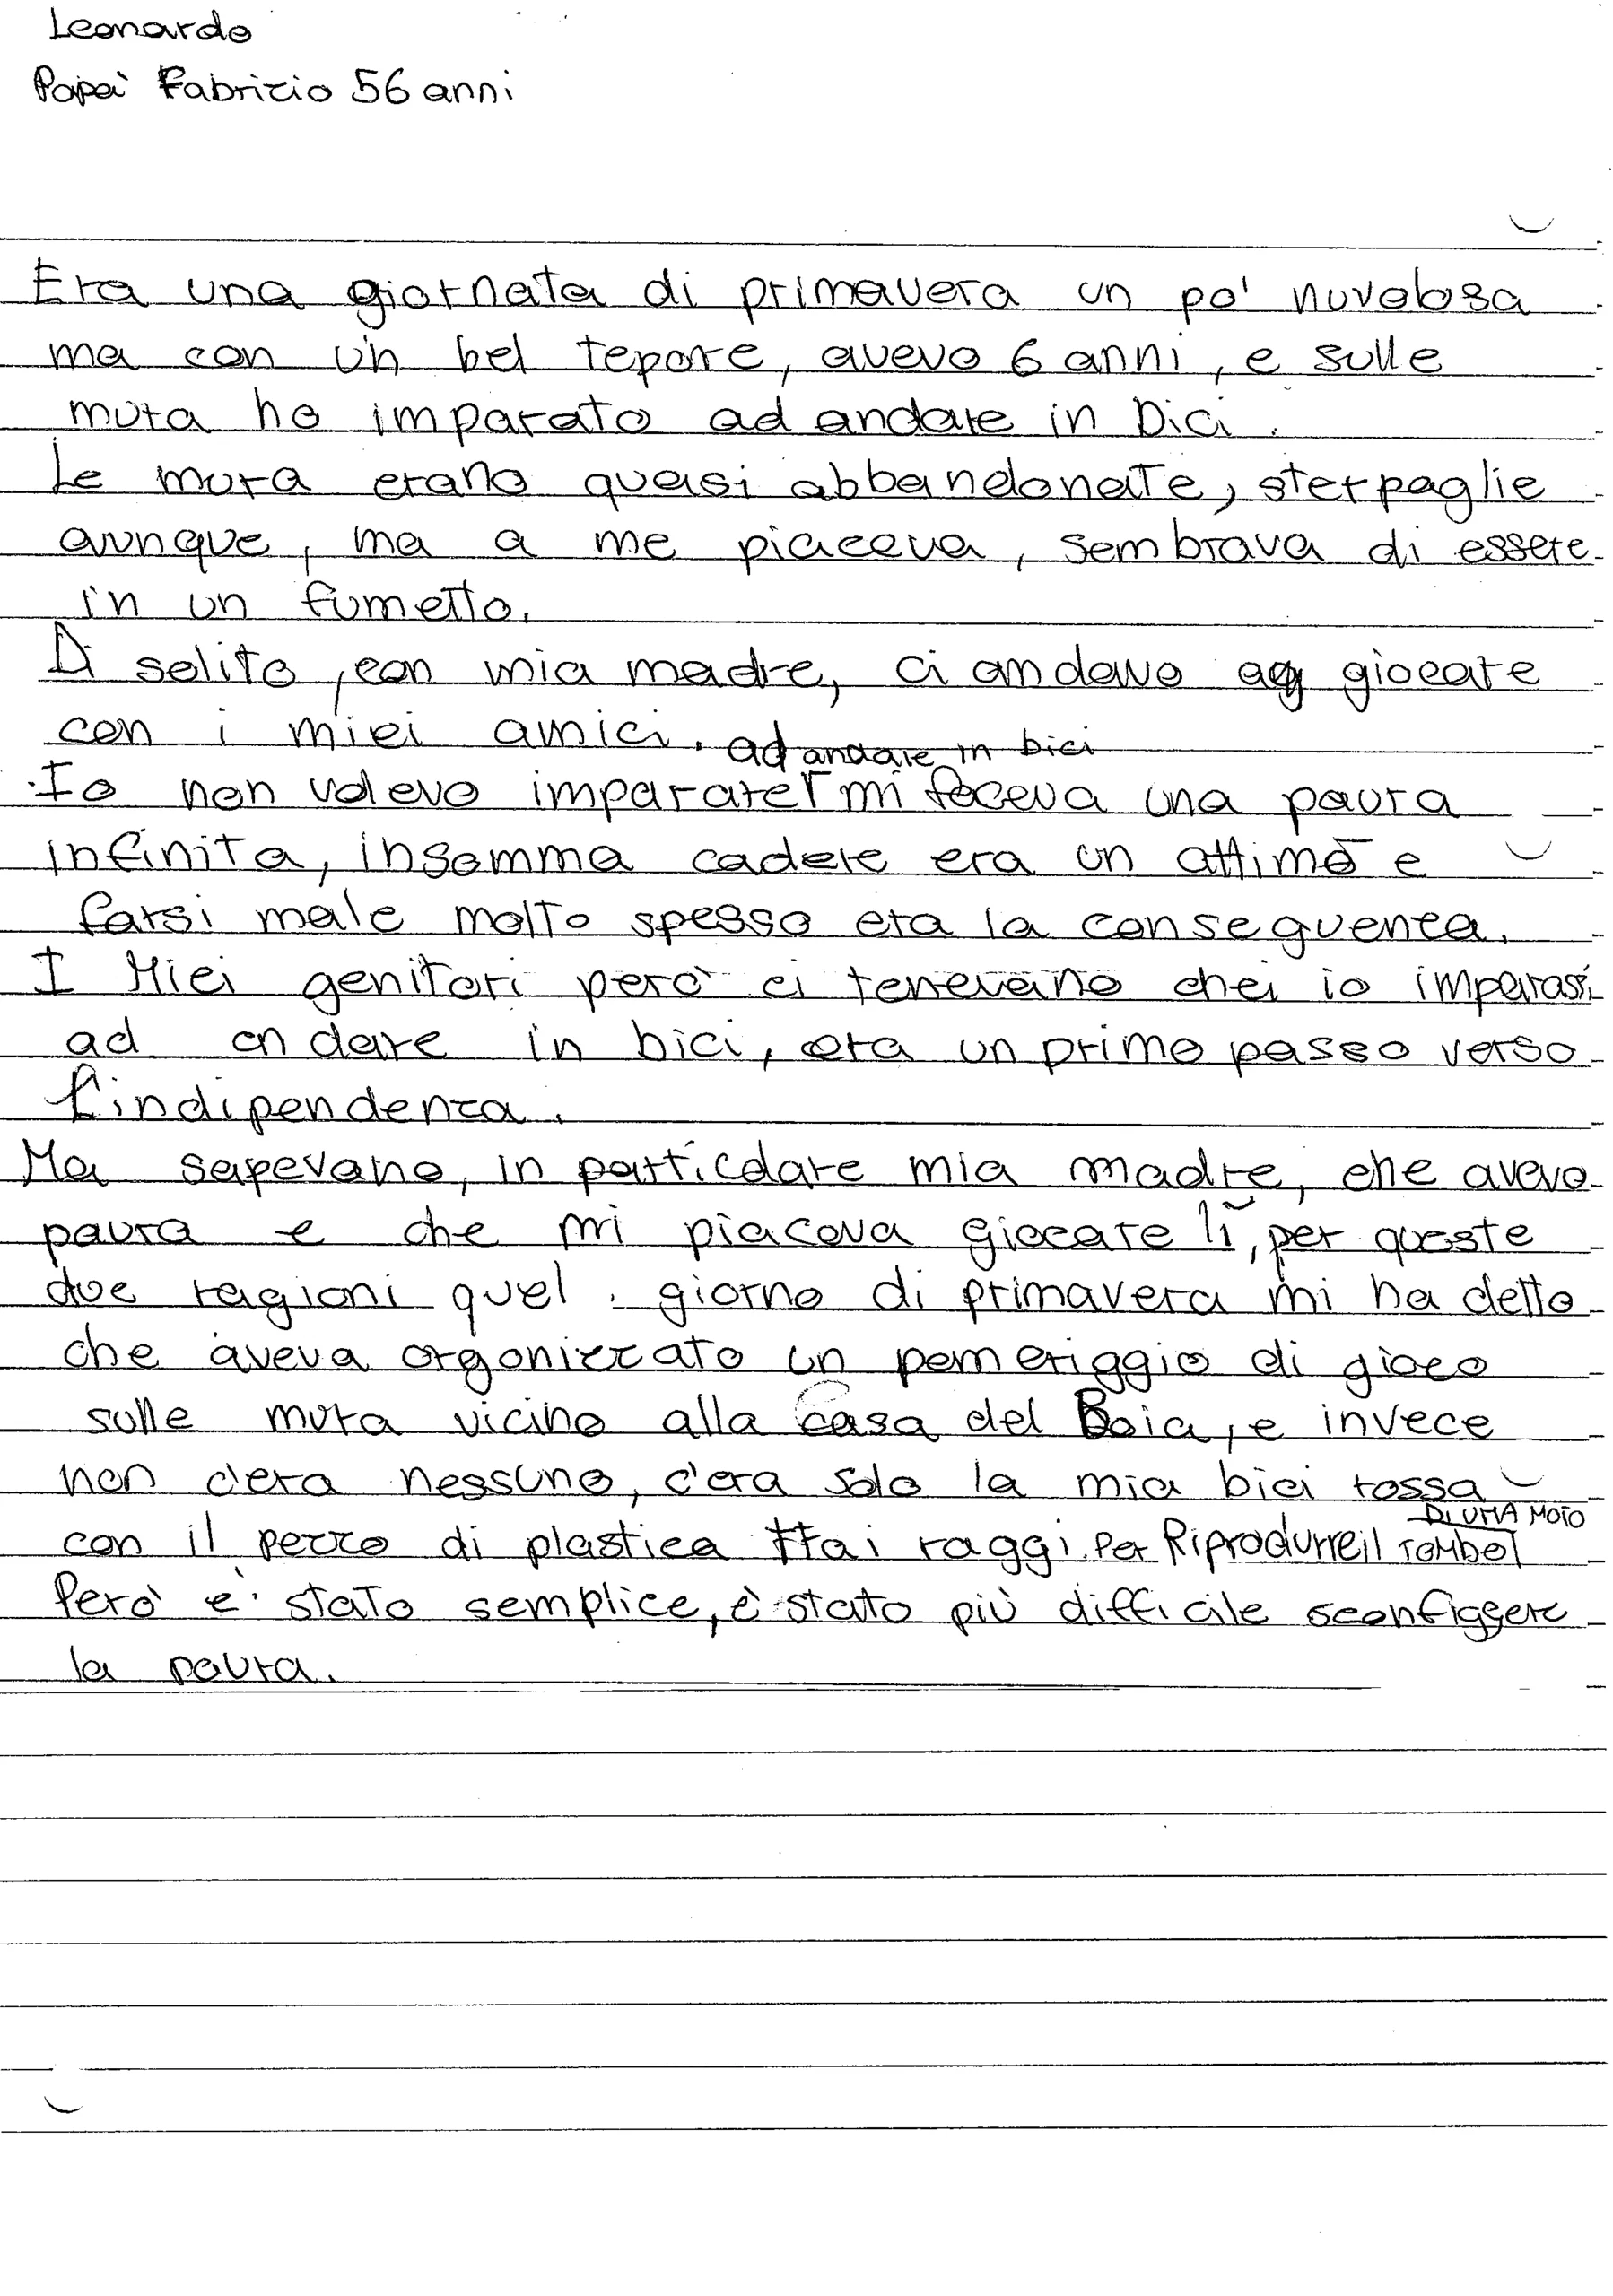 Leonardo
Papà Fabrizio 56 anni
Era una giornata di primavera un po' nuvolosa
ma con un bel tepore, avevo 6 anni, e sulle
mura ho imparato ad andare in bici.
Le mura erano quasi abbandonate, sterpaglie
ovunque, ma a me piaceva, sembrava di essere
in un fumetto.
Di solito, con mia madre, ci andavo a giocare
con i miei amici.
ad andare in bici
Io non volevo imparare mi faceva una paura
infinita, insomma cadere era un attimo e
farsi male molto spesso era la conseguenza.
I Miei genitori però ci tenevano che io imparassi
ad andare in bici, era un primo passo verso
l'indipendenza.
Ma sapevano, in particolare mia madre, che avevo
paura e che mi piaceva giocare lì, per queste
due ragioni quel giorno di primavera mi ha detto
che aveva organizzato un pomeriggio di gioco
sulle mura vicino alla casa del Boia, e invece
non c'era nessuno, c'era solo la mia bici rossa
DI UNA MOTO
con il pezzo di plastica trai raggi per Riprodurre il rombo
Però e' stato semplice, è stato più difficile sconfiggere
la paura.